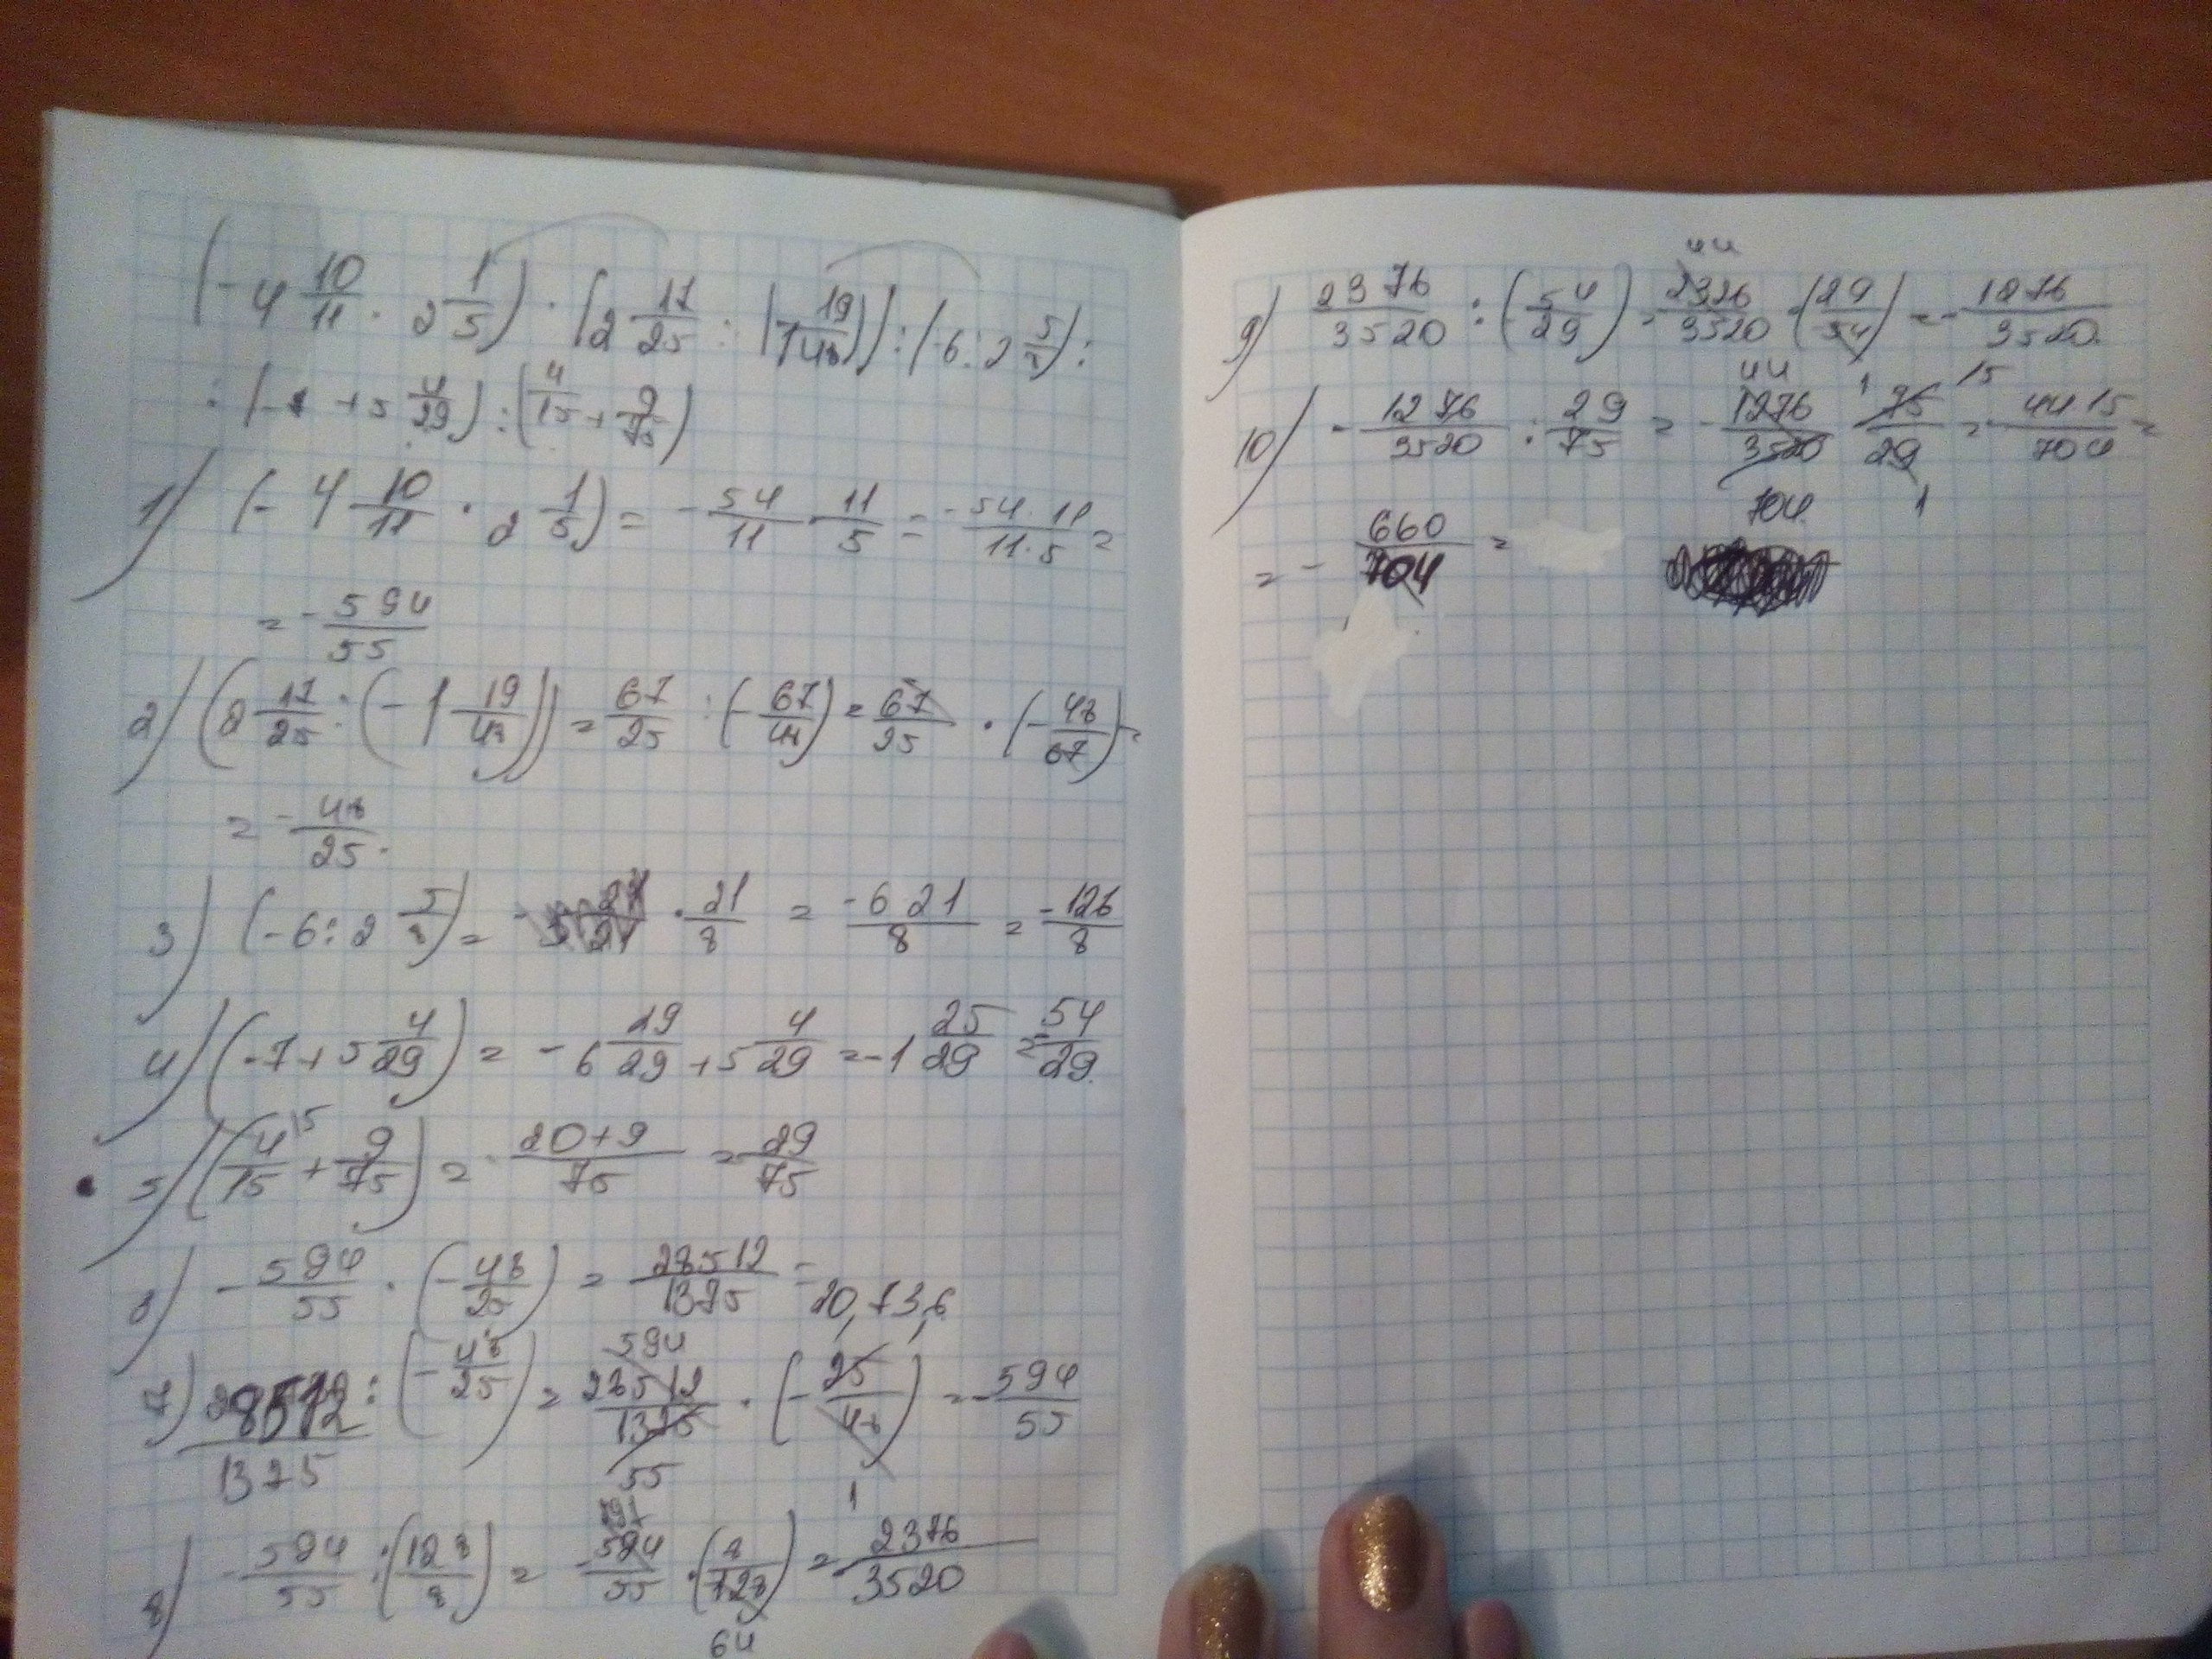 (-4 10/11 · 2 1/5) · (2 17/25 : (1 19/48)) : (-6 : 2 5/8) :
: (- + 5 4/29) : (4/15 + 9/75)
1) (-4 10/11 · 2 1/5) = - 54/11 · 11/5 = -54·11/11·5 =
= - 594/55
2) (2 17/25 : (-1 19/48)) = 67/25 : (- 67/48) = 67/25 · (- 48/67) =
= - 48/25.
3) (-6 : 2 5/8) = · 21/8 = -6 21/8 = -126/8
4) (-7 + 5 4/29) = -6 29/29 + 5 4/29 = -1 25/29 = -54/29.
5) (4/15 + 9/75) = 20+9/75 = 29/75
6) - 594/55 · (- 48/25) = 28512/1375 = 20,736
7) 28512/1375 : (- 48/25) = 28512/1375 · (- 25/48) = - 594/55
594 55 1 1
8) - 594/55 : (128/8) = - 594/55 · (8/128) = 2376/3520
64
9) 2376/3520 : (- 54/29) = 2376/3520 · (29/54) = - 1276/3520
44
10) - 1276/3520 : 29/75 = - 1276/3520 75/29 = 44 15/704 =
44 1 15 704 1
= - 660/704 =